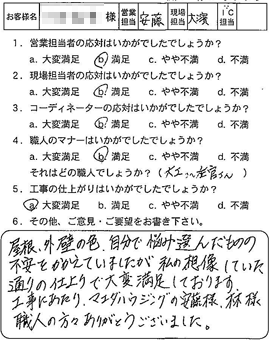 お客様名 様 営業担当 安藤 現場担当 大濱 IC担当
1．営業担当者の応対はいかがでしたでしょうか？
a. 大変満足 b. 満足 c. やや不満 d. 不満
2．現場担当者の応対はいかがでしたでしょうか？
a. 大変満足 b. 満足 c. やや不満 d. 不満
3．コーディネーターの応対はいかがでしたでしょうか？
a. 大変満足 b. 満足 c. やや不満 d. 不満
4．職人のマナーはいかがでしたでしょうか？
a. 大変満足 b. 満足 c. やや不満 d. 不満
それはどの職人でしょうか？（大工さん左官さん）
5．工事の仕上がりはいかがでしたでしょうか？
a. 大変満足 b. 満足 c. やや不満 d. 不満
6．その他、ご意見・ご要望をお書き下さい。
屋根、外壁の色、自分で悩み選んだものの
不安をかかえていましたが 私の想像していた
通りの仕上りで大変満足しております。
工事にあたり、マエダハウジングの安藤様、林様
職人の方々ありがとうございました。